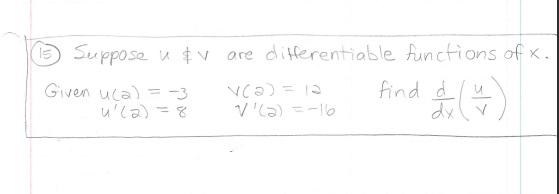 15 Suppose u & v are differentiable functions of x.
Given u(2) = -3 v(2) = 12 find d/dx (u/v)
u'(2) = 8 v'(2) = -16